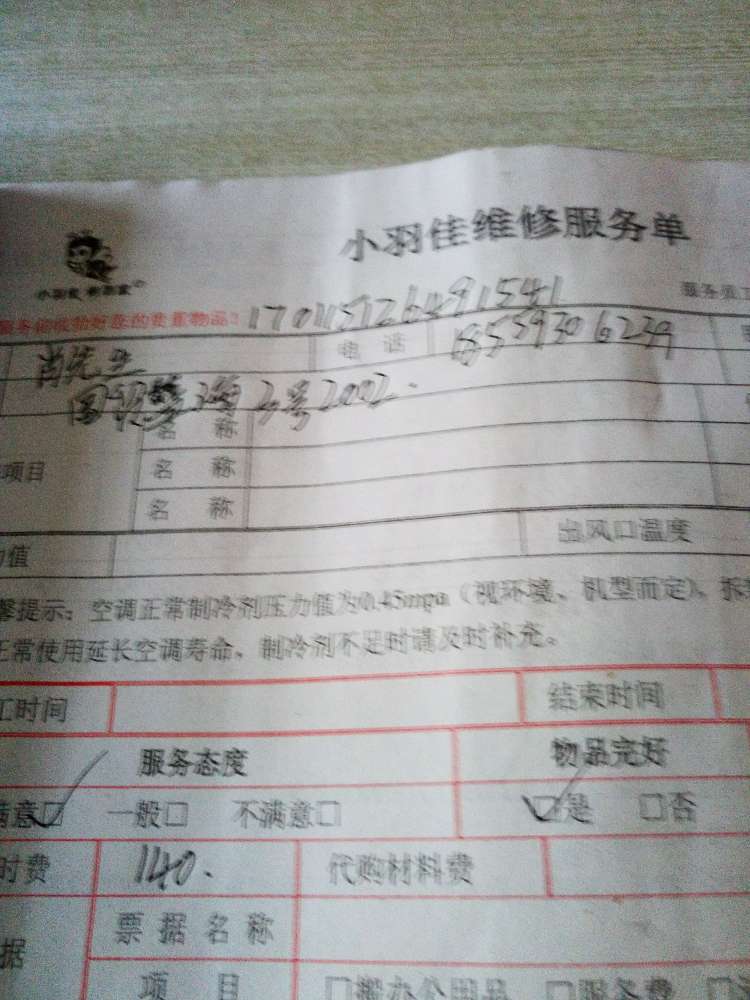 小羽佳维修服务单
服务员工
170115126491541
肖先生 电 话 18559306239
3号2002.
名 称
项目 名 称
名 称
力值 出风口温度
馨提示：空调正常制冷剂压力值为0.45mpa（视环境、机型而定），拆
正常使用延长空调寿命，制冷剂不足时请及时补充。
工时间 结束时间
服务态度 物品完好
满意☑ 一般□ 不满意□ ☑是 □否
时费 140. 代购材料费
据 票 据 名 称
项 目 □搬办公用品 □服务费